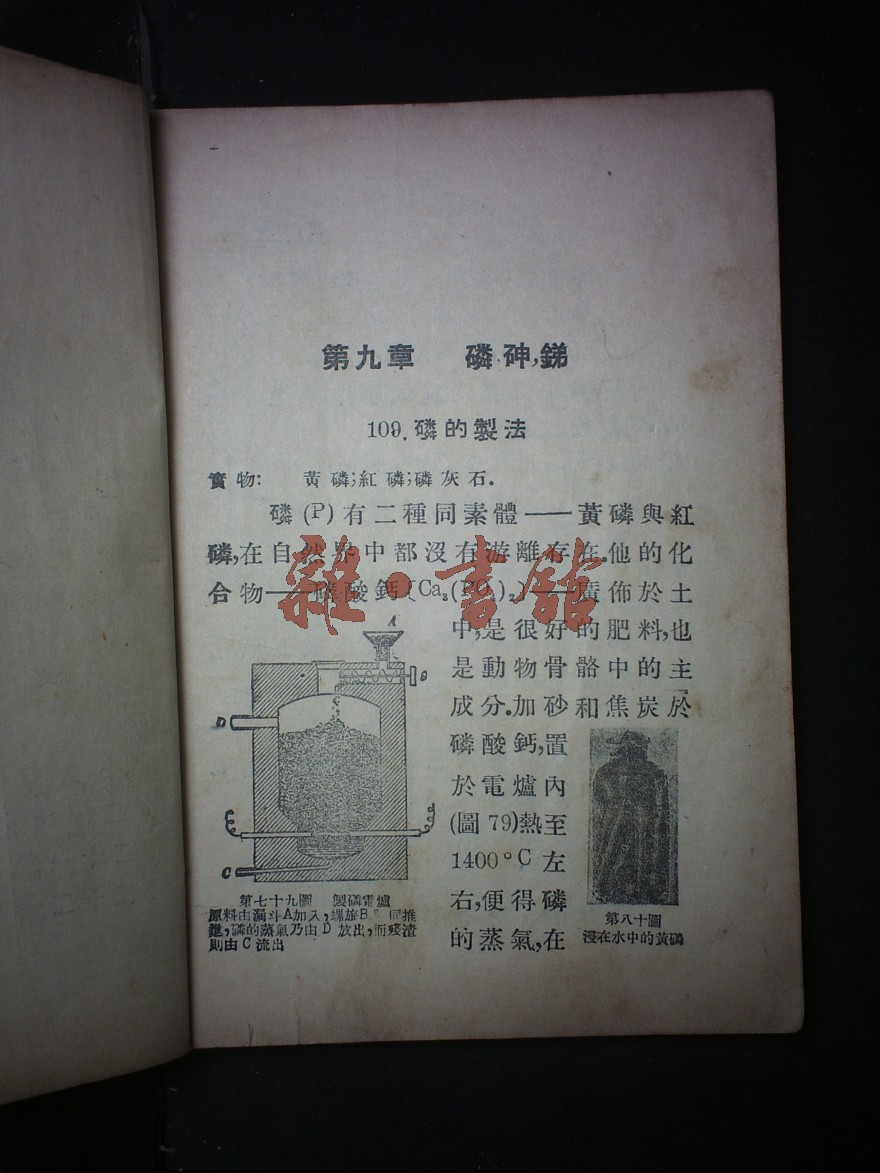 第九章 磷,砷,銻
109. 磷的製法
實物: 黃磷;紅磷;磷灰石.
磷(P)有二種同素體——黃磷與紅
磷,在自然界中都沒有游離存在.他的化
合物——磷酸鈣(Ca₃(PO₄)₂)——廣佈於土
中,是很好的肥料,也
是動物骨骼中的主
成分.加砂和焦炭於
磷酸鈣,置
於電爐內
(圖79)熱至
1400°C左
右,便得磷
的蒸氣,在
A
B
D
C
第七十九圖 製磷電爐
原料由漏斗A加入,螺旋B 向推
進,磷的蒸氣乃由D放出,而殘渣
則由C流出
第八十圖
浸在水中的黃磷
雜·書館